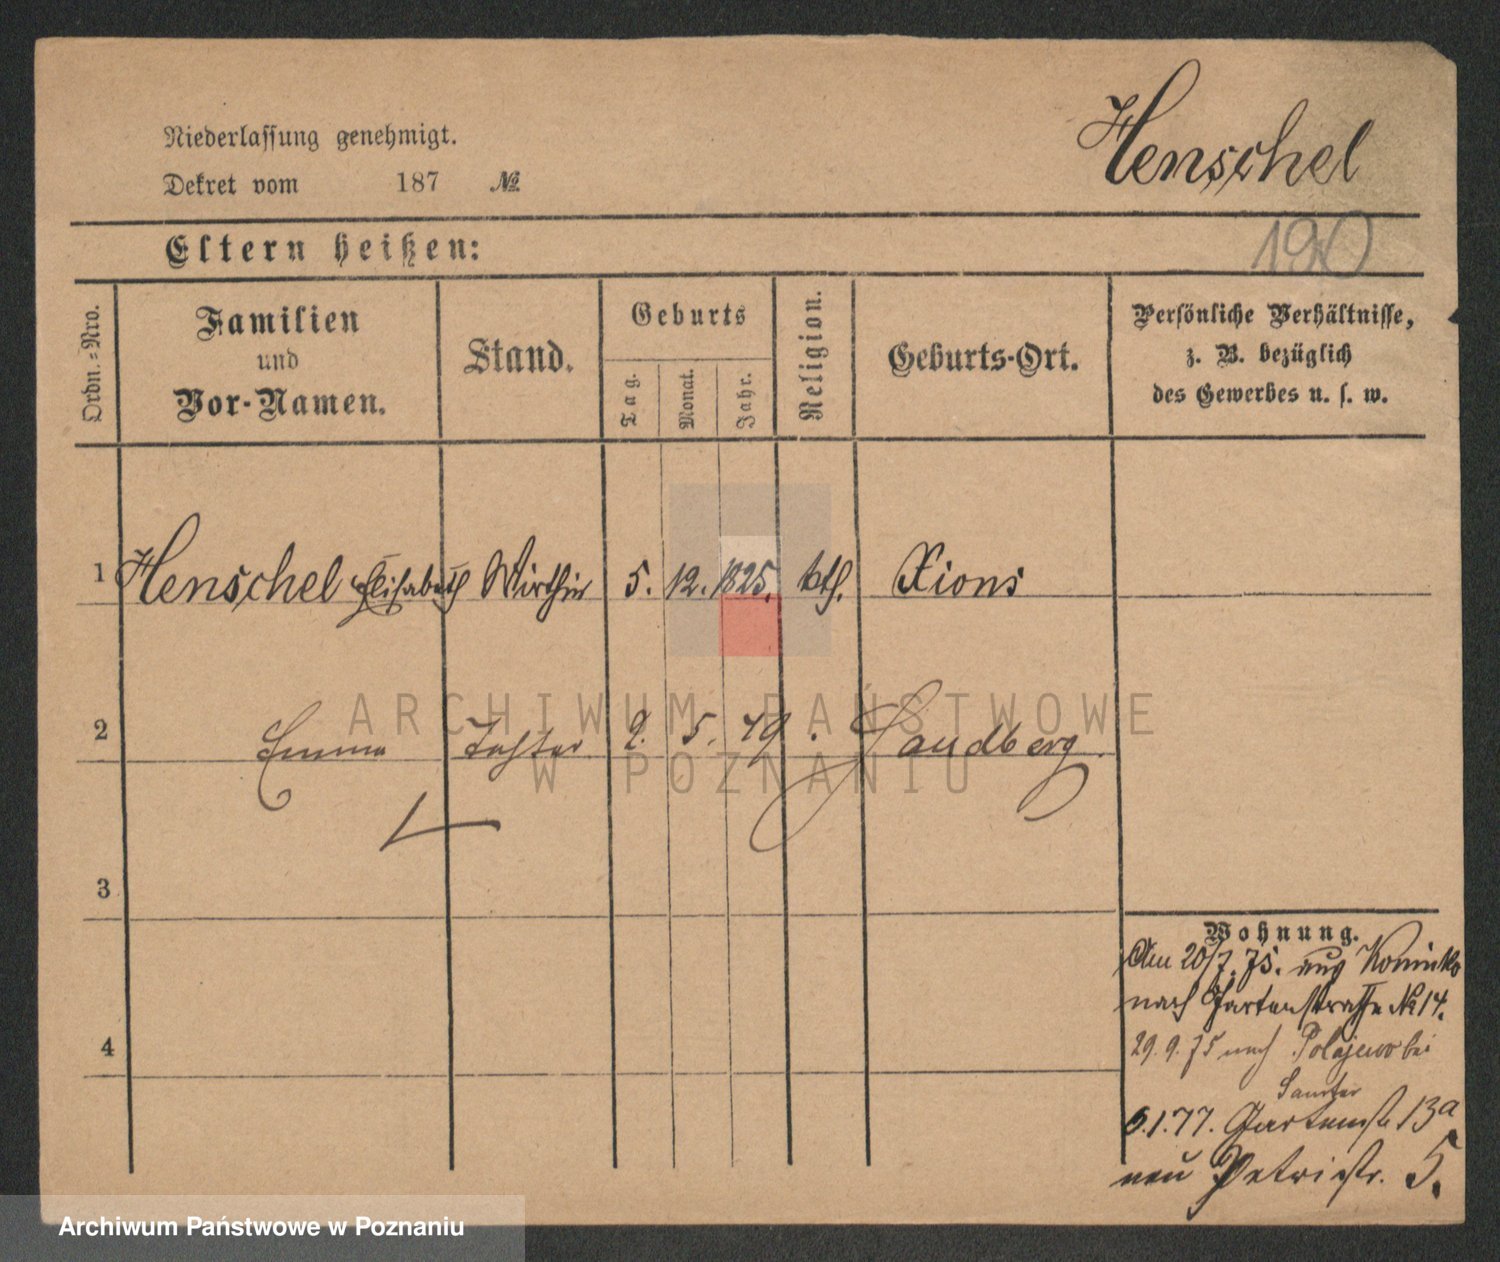 Henschel
Niederlassung genehmigt.
Dekret vom 187 №
190
Eltern heißen:
Ordn.-Nro.
Familien
und
Vor-Namen.
Stand.
Geburts
Tag.
Monat.
Jahr.
Religion.
Geburts-Ort.
Persönliche Verhältnisse,
z. B. bezüglich
des Gewerbes u. s. w.
1 Henschel Elisabeth Wirthin 5. 12. 1825. kth. Xions
2 Emma Tochter 2. 5. 49. Sandberg.
3
4
Wohnung.
Am 20/7. 75. aus
nach Gartenstrasse № 14.
29. 9. 75 nach Polajewo bei
Samter
6.1.77. Gartenstr 13a
neu Petristr. 5.
ARCHIWUM PAŃSTWOWE
W POZNANIU
Archiwum Państwowe w Poznaniu